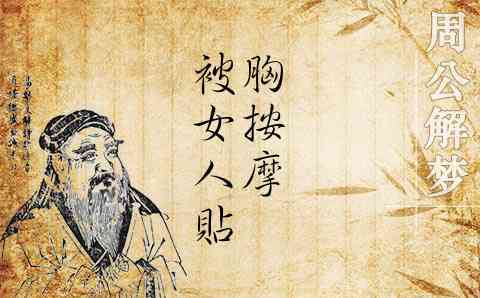 周公解梦
胸按摩
被女人貼